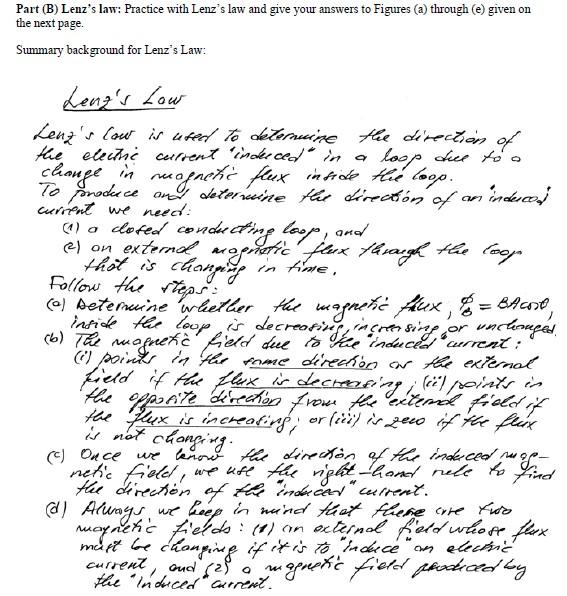 Part (B) Lenz's law: Practice with Lenz's law and give your answers to Figures (a) through (e) given on
the next page.
Summary background for Lenz's Law:
Lenz's Law
Lenz's law is used to determine the direction of
the electric current "induced" in a loop due to a
change in magnetic flux inside the loop.
To produce and determine the direction of an induced
current we need:
(1) a closed conducting loop, and
(2) an external magnetic flux through the loop
that is changing in time.
Follow the steps:
(a) Determine whether the magnetic flux, Φ_B = BA cosθ,
inside the loop is decreasing, increasing, or unchanged.
(b) The magnetic field due to the "induced" current:
(i) points in the same direction as the external
field if the flux is decreasing; (ii) points in
the opposite direction from the external field if
the flux is increasing; or (iii) is zero if the flux
is not changing.
(c) Once we know the direction of the induced mag-
netic field, we use the right-hand rule to find
the direction of the "induced" current.
(d) Always we keep in mind that there are two
magnetic fields: (1) an external field whose flux
must be changing if it is to "induce" an electric
current, and (2) a magnetic field produced by
the "induced" current.